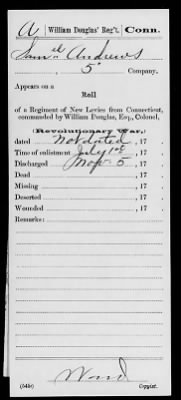 A | William Douglas' Reg't. | Conn.
Sam'el Andrews
5" Company.
Appears on a
Roll
of a Regiment of New Levies from Connecticut,
commanded by William Douglas, Esq., Colonel,
(Revolutionary War,)
dated Not dated, 17
Time of enlistment July 1st, 17
Discharged Nov 5, 17
Dead, 17
Missing, 17
Deserted, 17
Wounded, 17
Remarks:
Ward
(545) Copyist.